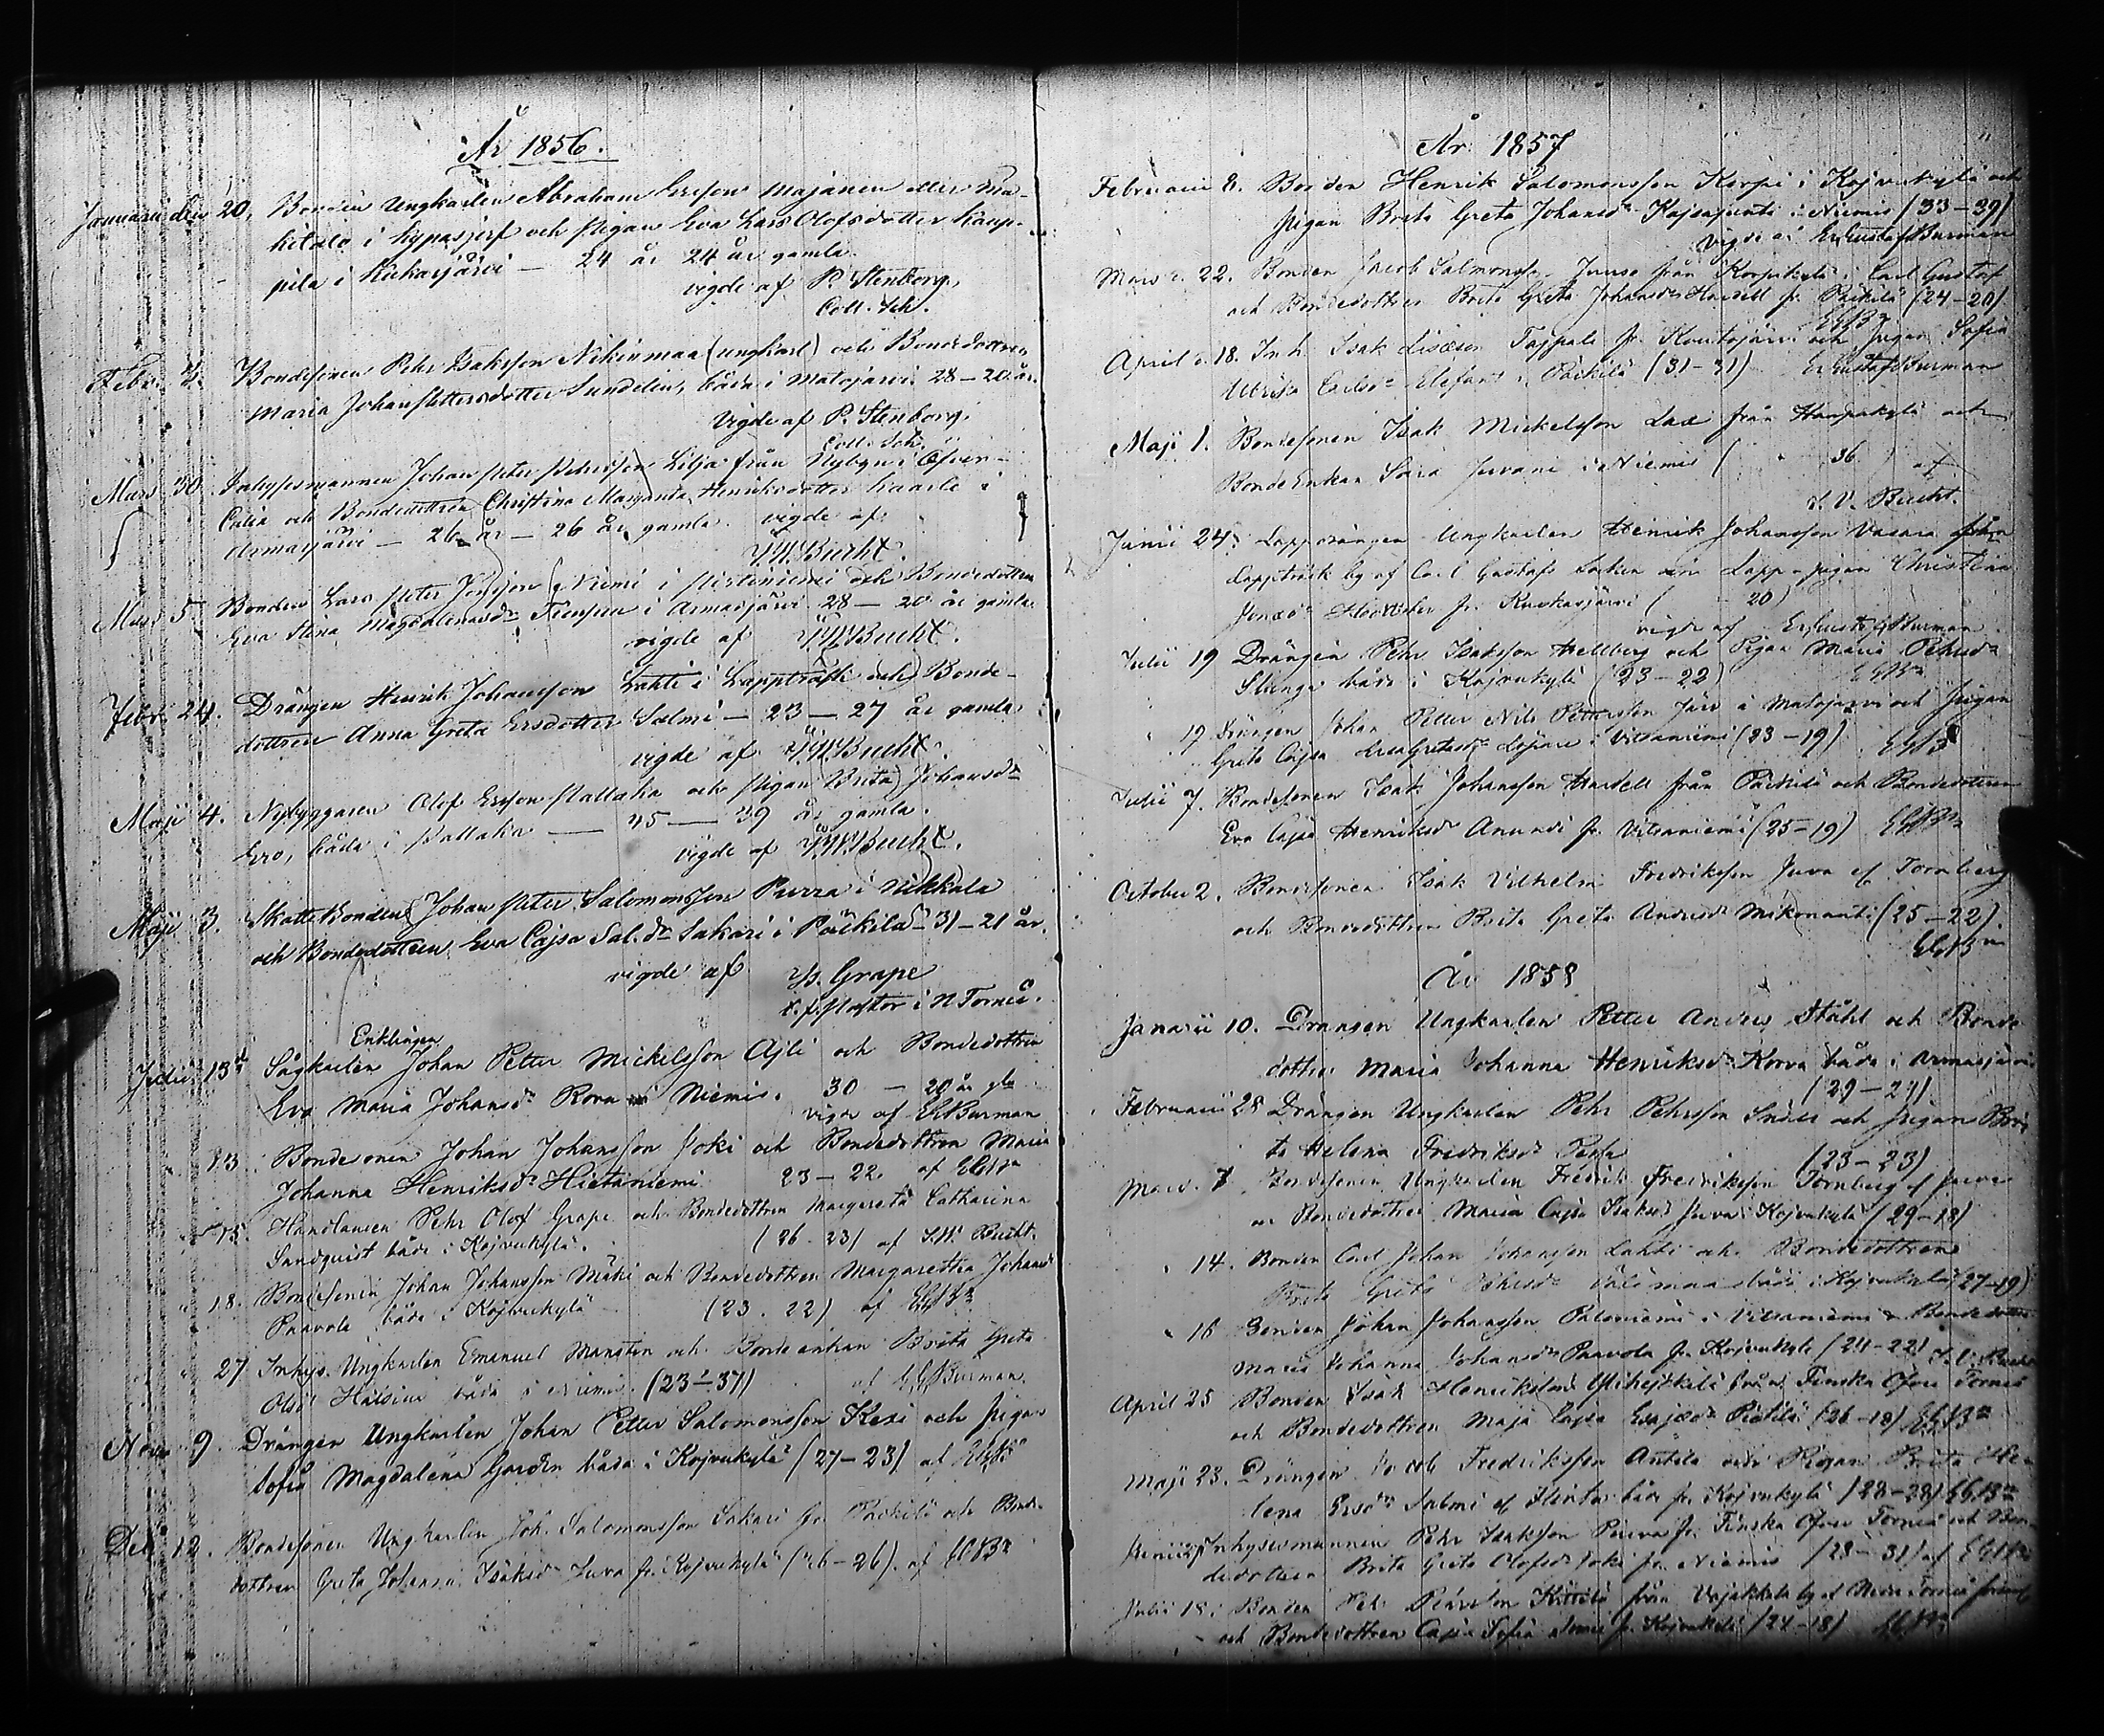 År 1856.
Januarii den 20. Bonden Ungkarlen Abraham Ersson Majanen eller Ma-
kitalo i Kypasjerf och Pigan Eva Lars Olofsdotter Kaup-
pila i Kukasjärvi — 24 år 24 år gamla.
vigde af P. Stenborg,
Coll. Sch.
Febr. 3. Bondesonen Pehr Isaksson Nikinmaa (ungkarl) och Bondedottren
Maria Johan Pettersdotter Sundelin, båda i Matojärvi 28 — 20 år.
Vigde af P. Stenborg.
Coll. Sch.
Mars 30. Inhysesmannen Johan Peter Petersson Lilja från Nybyn i Öfver-
Calix och Bondedottren Christina Margareta Henriksdotter Kaarle i
Armasjärvi — 26 år — 26 år gamla. vigde af
Bucht.
Mars 5 Bonden Lars Peter Niemi i och Bondedottren
Eva Stina Magdalenasdr i Armasjärvi 28 — 20 år gamla.
vigde af Bucht.
Febr. 24. Drängen Henrik Johansson Lahti i Lappträsk och Bonde-
dottren Anna Greta Ersdotter Salmi — 23 — 27 år gamla
vigde af Bucht.
Maji 4. Nybyggaren Olof Ersson Pallaka och Pigan Brita Johansdr
Ero, båda i Pallaka — 45 — 39 år gamla.
vigde af Bucht.
Maji 3. Skattebonden Johan Peter Salomonsson Purra i Nikkala
och Bondedottren Eva Cajsa Sal.dr Sakari i Päckilä 31 — 21 år.
vigde af Grape
Pastor i N Torneå.
Enklingen
Julii 13d Sågkarlen Johan Petter Mickelsson Ajli och Bondedottren
Eva Maria Johansdr Rova i Niemis. 30 — 20 år gla
vigde af EGBurman
" 13. Bondesonen Johan Johansson Joki och Bondedottren Maria
Johanna Henriksdr Hietaniemi 23 — 22 af EGBn
" 15. Handlanden Pehr Olof Grape och Bondedottren Margareta Catharina
Sandquist båda i Kojvukylä. (26 - 23) af Bucht.
" 18. Bondesonen Johan Johansson Mäki och Bondedottren Margaretha Johansdr
Paavola båda i Kojvukylä (23 - 22) af EGBn
" 27 Inhys. Ungkarlen Emanuel och Bondeenkan Brita Greta
Olsdr båda i Niemis. (23 — 37) af EGBurman
Nov. 9. Drängen Ungkarlen Johan Petter Salomonsson Kexi och Pigan
Sofia Magdalena båda i Kojvukylä (27 — 23) af EGBn
Dec 12. Bondesonen Ungkarlen Joh. Salomonsson Sakari fr. Päckilä och Bonde-
dottren Greta Johanna Isaksdr Juva fr. Kojvukylä (26 — 26). af EGBn
År 1857
Februarii 8. Bonden Henrik Salomonsson Korpi i Kojvukylä och
Pigan Brita Greta Johansdr i Niemis (33 — 29)
vigde af Er Gustaf Burman
Mars d. 22. Bonden Jacob Salmonss. Juuso från Korpikylä i Carl Gustaf
och Bondedottren Brita Greta Johansdr Hardell fr. Päckilä (24 — 20)
EGBn
April d. 18. Inh. Isak Tajpale fr. Kuutojärvi och Pigan Sofia
Ulrika Carlsdr Elefant i Päckilä (31 — 31) Er Gustaf Burman
Maji 1. Bondesonen Isak Mickelsson Lax från Haapakylä och
BondeEnkan Sara Juvani i Niemis ( 36 ) af
Bucht.
Junii 24. Lappdrängen Ungkarlen Henrik Johansson Vasara från
Lappträsk by af Carl Gustafs Socken och Lapp-pigan Christina
fr. Kuukasjärvi ( — 20)
vigde af Er Gustaf Burman
Julii 19 Drängen Pehr Isaksson Hellberg och Pigan Maria Pehrsdr
båda i Kojvukylä (23 — 22) EGBn
" 19 Drängen Johan Petter Nils Pettersson i Matojärvi och Pigan
Greta Cajsa i Vitsaniemi (23 — 19) EGBn
Julii 7. Bondesonen Isak Johansson Hardell från Päckilä och Bondedottren
Eva Cajsa Henriksdr Anundi fr. Vitsaniemi (25 — 19) EGBn
October 2. Bondesonen Isak Vilhelm Fredriksson Juva el. Tornberg
och Bondedottren Brita Greta Andersdr Mikonanti (25 — 22)
EGBn
År 1858
Januarii 10. Drängen Ungkarlen Petter Anders Ståhl och Bonde-
dottren Maria Johanna Henriksdr Korva båda i Armasjärvi
(29 — 27)
Februarii 28 Drängen Ungkarlen Pehr Pehrsson och Pigan Bri-
ta Helena Fredriksdr (23 — 23)
Mars 7. Bondesonen Ungkarlen Fredrik Fredriksson Tornberg el. Juva
och Bondedottren Maria Cajsa Isaksdr Juva i Kojvukylä (29 — 18)
" 14. Bonden Carl Johan Johansson Lahti och Bondedottren
Brita Greta Pehrsdr båda i Kojvukylä (27 — 19)
" 16 Bonden Johan Johansson Paloniemi i Vitsaniemi & Bondedottren
Maria Johanna Johansdr Paavola fr. Kojvukylä (24 — 22)
April 25 Bonden Isak Henriksson från Finska Öfver Torneå
och Bondedottren Maja Cajsa Piätilä (26 — 18) EGBn
Maji 23. Drängen Jacob Fredriksson Antila och Pigan Brita He-
lena Ersdr Salmi el. båda fr. Kojvukylä (28 — 28) EGBn
Junii Inhysesmannen Pehr Isaksson fr. Finska Öfver Torneå och Bon-
dedottren Brita Greta Olofsdr Joki fr. Niemis (28 — 31) af EGBn
Julii 18. Bonden Pehr Kittilä från Vojakkala by af Neder Torneå
och Bondedottren Cajsa Sofia fr. Kojvukylä (24 — 18) EGBn